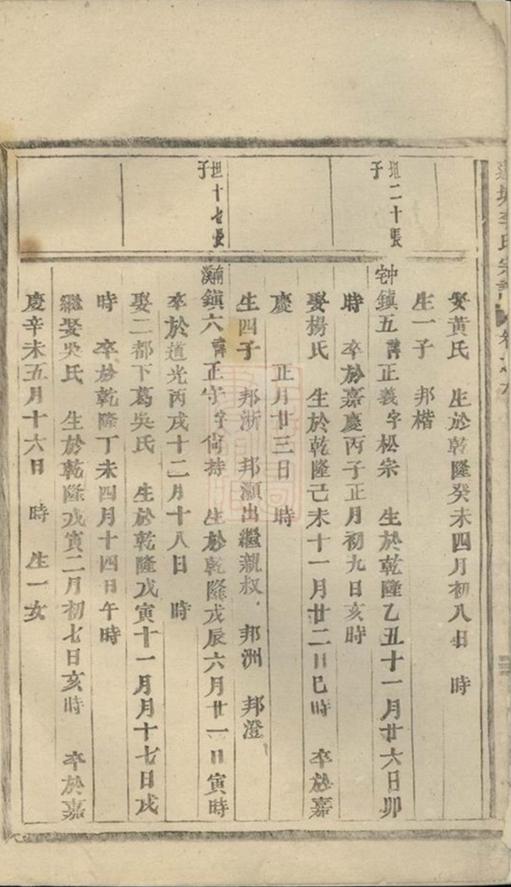 娶黃氏 生於乾隆癸未四月初八日 時
生一子 邦楷
鎮五 諱正義字松宗 生於乾隆乙丑十一月廿六日卯
時 卒於嘉慶丙子正月初九日亥時
娶楊氏 生於乾隆己未十一月廿二日巳時 卒於嘉
慶 正月廿三日 時
生四子 邦浙 邦灝出繼親叔 邦洲 邦澄
鎮六 諱正守字尚持 生於乾隆戊辰六月廿一日寅時
卒於道光丙戌十二月十八日 時
娶二都下葛吳氏 生於乾隆戊寅十一月月十七日戌
時 卒於乾隆丁未四月十四日午時
繼娶吳氏 生於乾隆戊寅二月初七日亥時 卒於嘉
慶辛未五月十六日 時 生一女
二十張
子
坦十七張
子
李氏宗譜